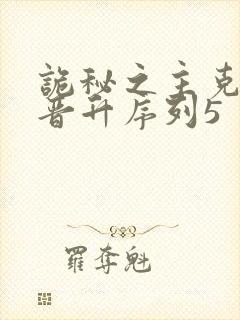 诡秘之主克
晋升序列5
罗夺魁